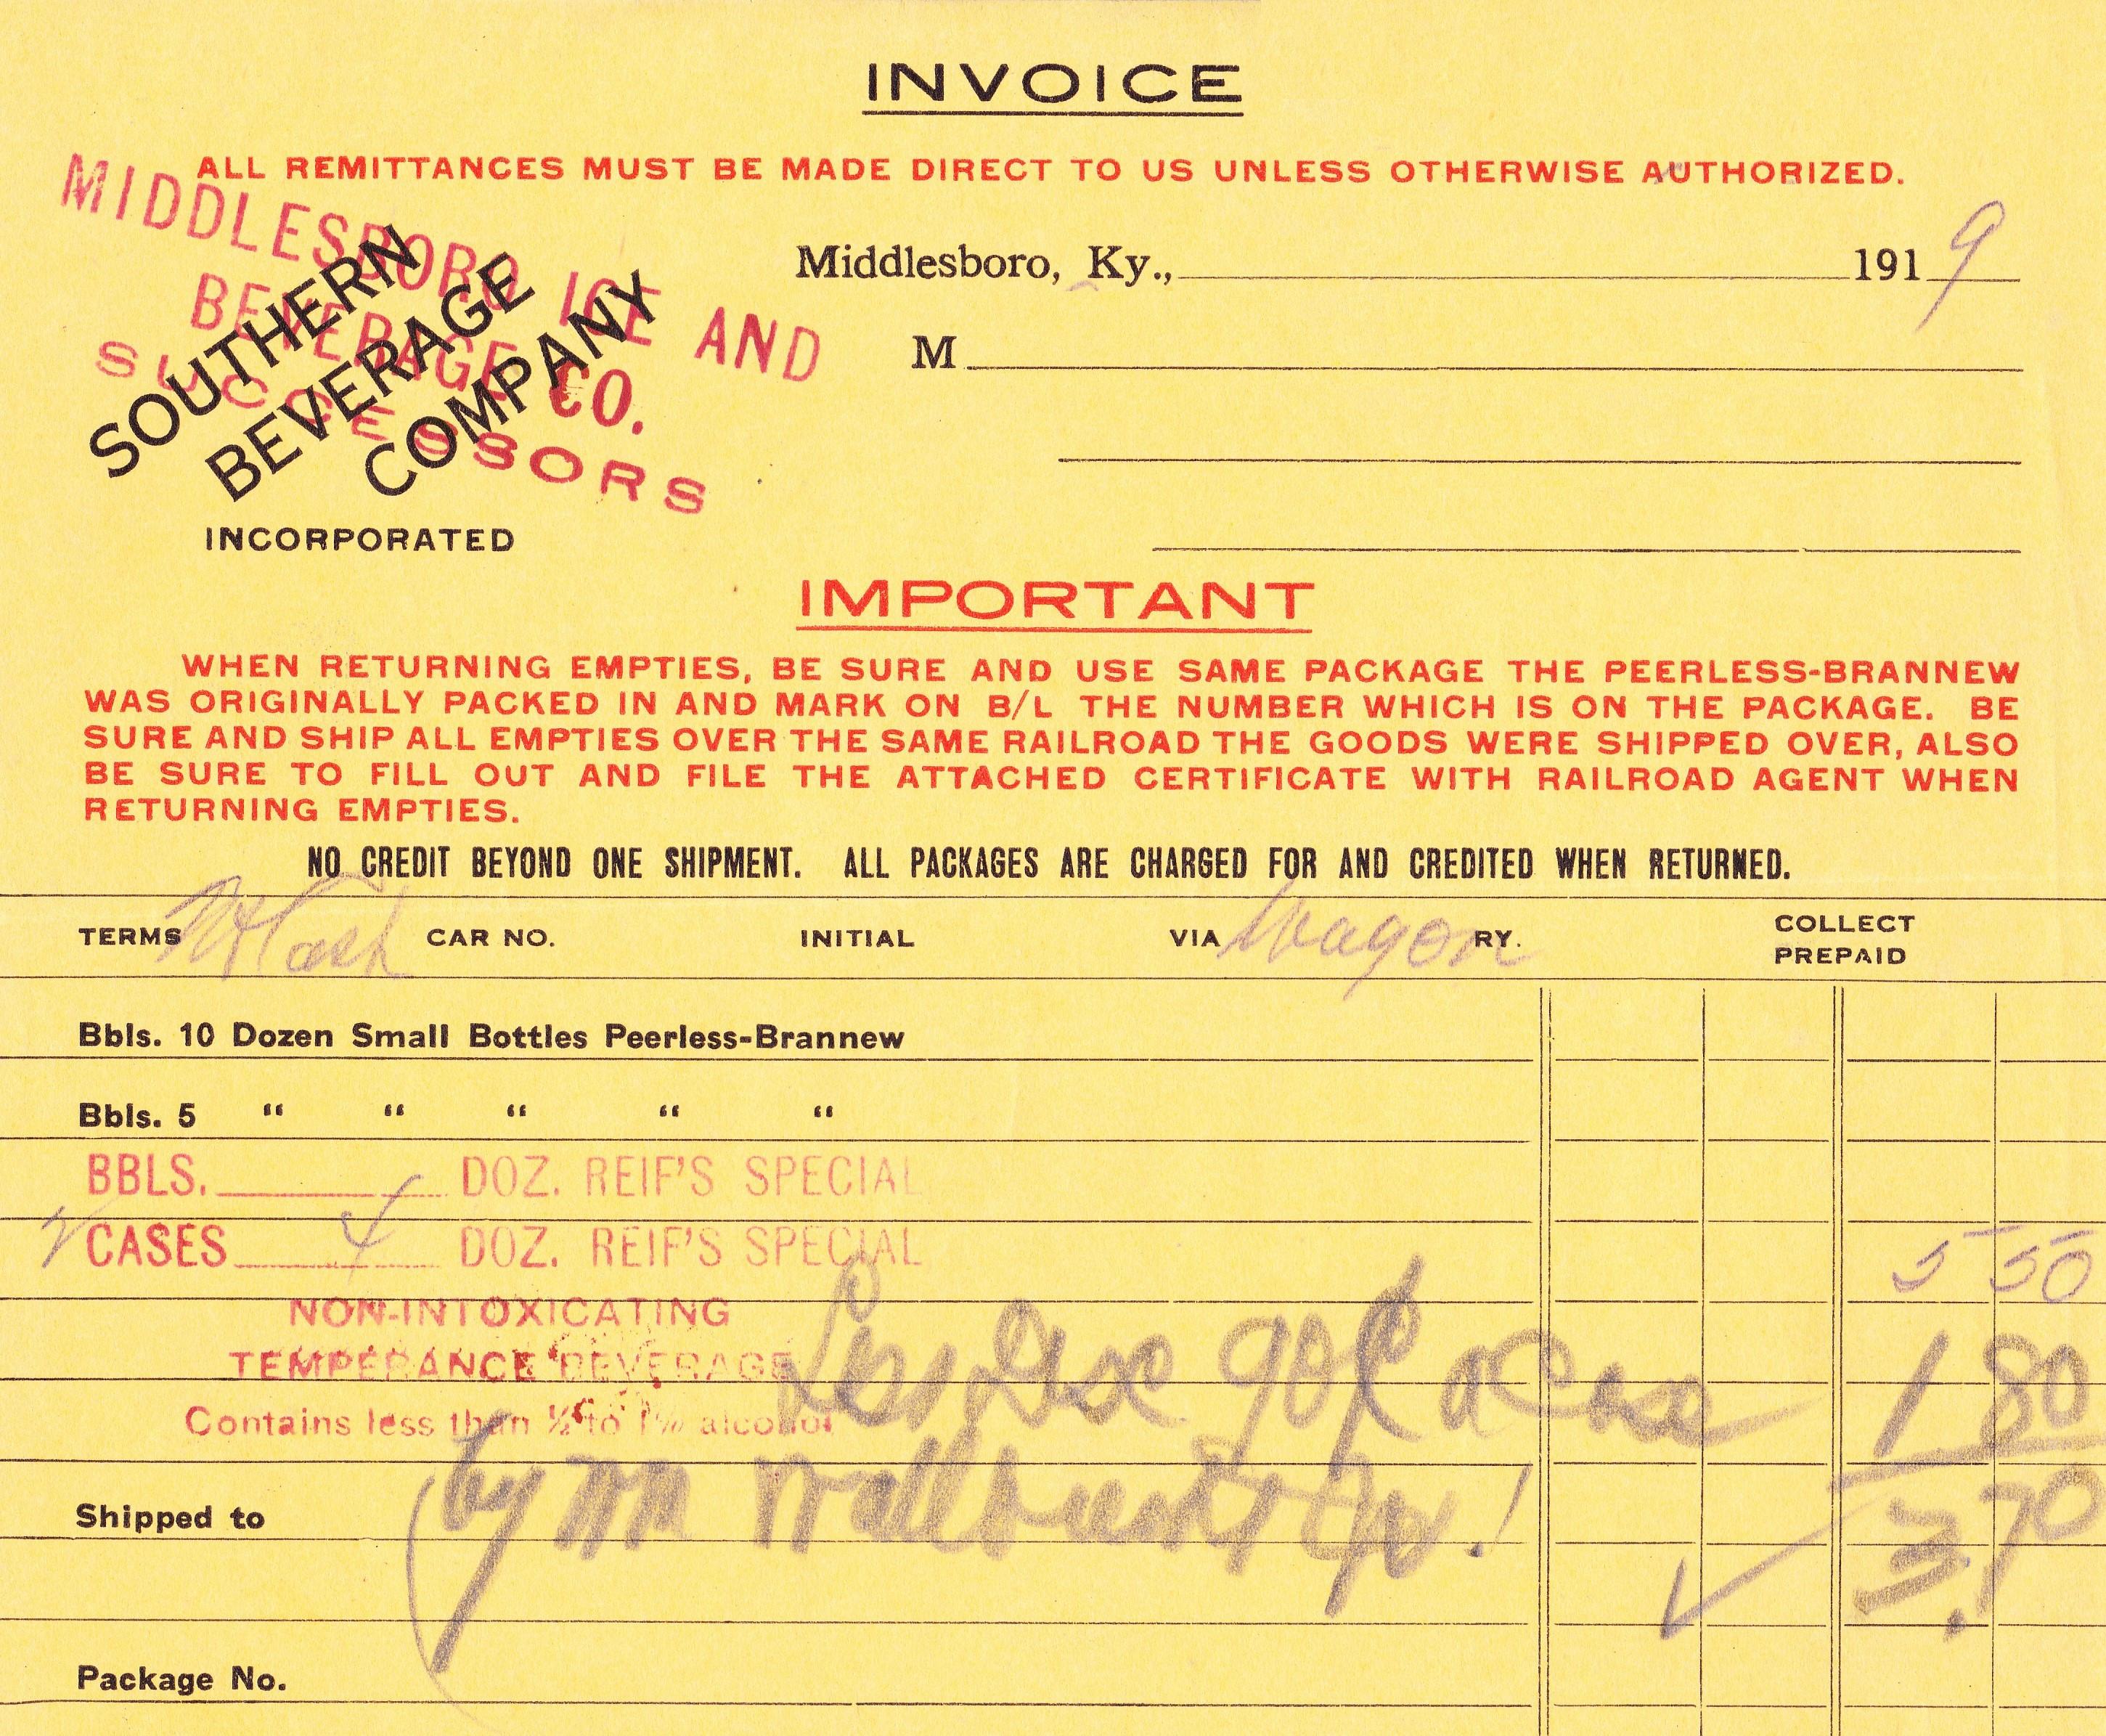 INVOICE
ALL REMITTANCES MUST BE MADE DIRECT TO US UNLESS OTHERWISE AUTHORIZED.
MIDDLESBORO ICE AND
BEVERAGE CO.
SUCCESSORS
SOUTHERN
BEVERAGE
COMPANY
INCORPORATED
Middlesboro, Ky., 1919
M
IMPORTANT
WHEN RETURNING EMPTIES, BE SURE AND USE SAME PACKAGE THE PEERLESS-BRANNEW
WAS ORIGINALLY PACKED IN AND MARK ON B/L THE NUMBER WHICH IS ON THE PACKAGE. BE
SURE AND SHIP ALL EMPTIES OVER THE SAME RAILROAD THE GOODS WERE SHIPPED OVER, ALSO
BE SURE TO FILL OUT AND FILE THE ATTACHED CERTIFICATE WITH RAILROAD AGENT WHEN
RETURNING EMPTIES.
NO CREDIT BEYOND ONE SHIPMENT. ALL PACKAGES ARE CHARGED FOR AND CREDITED WHEN RETURNED.
TERMS Cash CAR NO. INITIAL VIA Wagon RY. COLLECT
PREPAID
Bbls. 10 Dozen Small Bottles Peerless-Brannew
Bbls. 5 " " " " "
BBLS. DOZ. REIF'S SPECIAL
2 CASES 4 DOZ. REIF'S SPECIAL 5 50
NON-INTOXICATING
TEMPERANCE BEVERAGE
Contains less than ½ to 1% alcohol
Less Disc 90¢ a Case 1 80
Shipped to by 3.70
Package No.